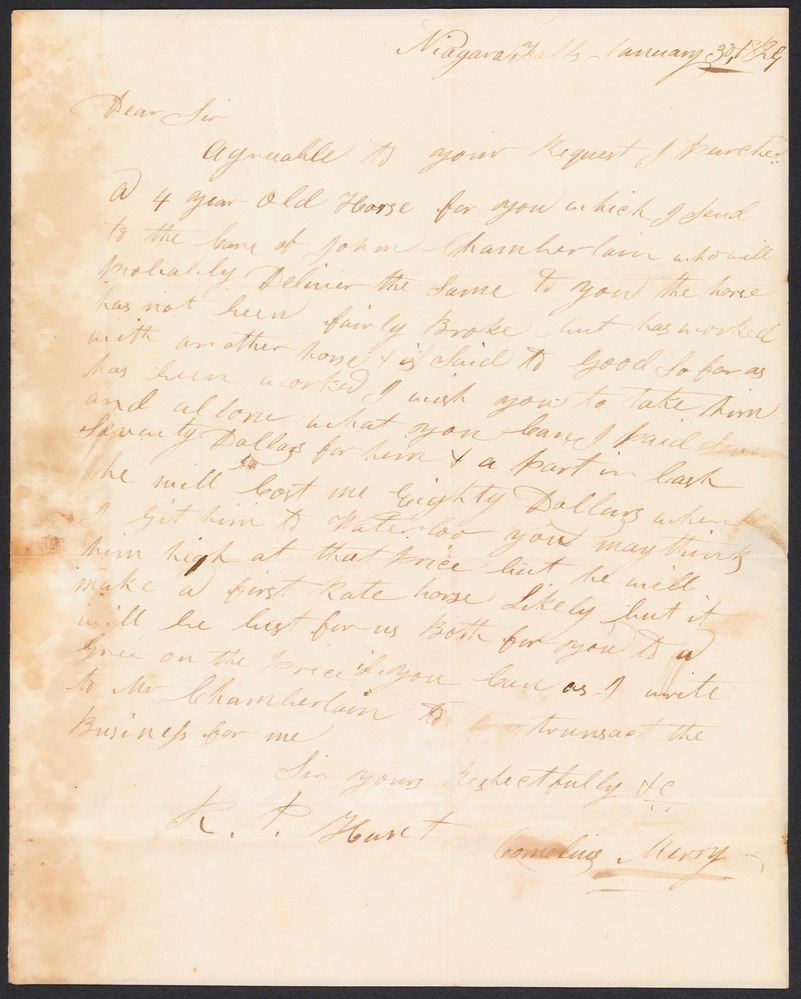 Niagara Falls January 30, 1829
Dear Sir
Agreeable to your Request I Purche=
a 4 year Old Horse for you which I Send
to the Care of John Chamberlain who will
probably Deliver the Same to you the horse
has not been fairly Broke but has worked
with another horse & is Said to Good So far as
has been worked I wish you to take him
and allow what you Can I paid
Seventy Dollars for him & a part in Cash
he will Cost me Eighty Dollars when
I Git him to Waterloo you may think
him high at that price but he will
make a first Rate horse Likely but it
will be best for us Both for you to a
Gree on the price if you Can as I write
to Mr Chamberlain to transact the
Business for me
Sir yours Respectfully &c
R. P. Hunt
Cornelius Merry